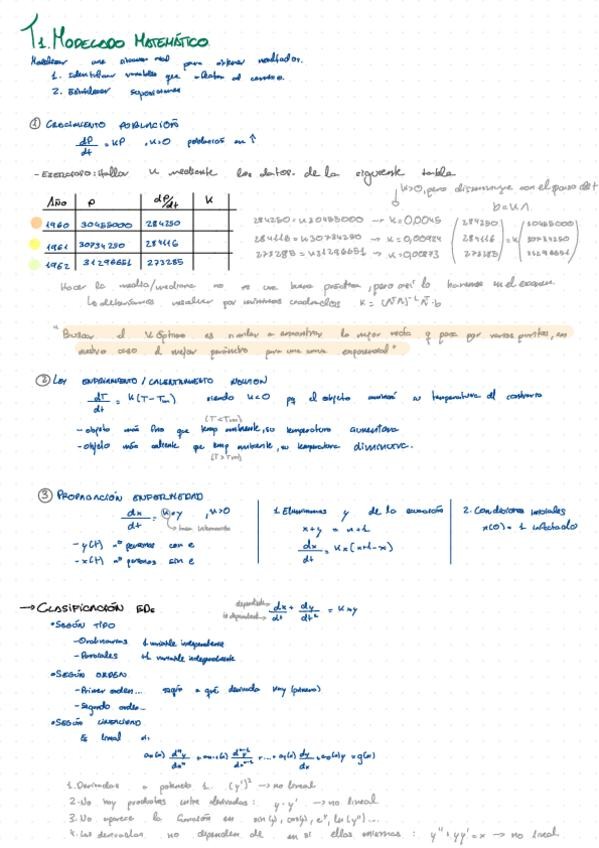 T1. MODELADO MATEMÁTICO
Modelizar una situación real para obtener resultados.
1. Identificar variables que afectan al cambio.
2. Establecer suposiciones
① CRECIMIENTO POBLACIÓN
dP/dt = KP , K>0 población en ↑
- EJERCICIO: Hallar K mediante los datos de la siguiente tabla
K>0, pero disminuye con el paso del t
Año P dP/dt K
1960 30455000 284250
1961 30734250 284116
1962 31296651 273285
284250 = K 30455000 → K = 0,0045
284116 = K 30734250 → K = 0,00924
273285 = K 31296651 → K = 0,00873
b = K A
(284250 284116 273285) = K (30455000 30734250 31296651)
Hacer la media/mediana no es una buena práctica, pero así lo haremos en el examen
Lo deberíamos resolver por mínimos cuadrados K = (AᵗA)⁻¹ Aᵗ·b
"Buscar el K óptimo es intentar encontrar la mejor recta q pasa por varios puntos, en nuestro caso el mejor parámetro para una curva exponencial"
② LEY ENFRIAMIENTO / CALENTAMIENTO NEWTON
dT/dt = K(T - Tm) siendo K<0 pq el objeto su temperatura al contrario
(T<Tm)
- objeto más frío que temp ambiente, su temperatura aumentará
- objeto más caliente que temp ambiente, su temperatura DISMINUIRÁ.
(T>Tm)
③ PROPAGACIÓN ENFERMEDAD
dx/dt = Kxy , K>0
- y(t) nº personas con e
- x(t) nº personas sin e
1. Eliminamos y de la ecuación
x+y = n+1
dx/dt = Kx(n+1-x)
2. Condiciones iniciales
x(0) = 1 infectado
→ CLASIFICACIÓN EDs
dx/dt + dy/dt² = Kxy
• SEGÚN TIPO
- Ordinarias 1 variable independiente
- Parciales +1 variable independiente
• SEGÚN ORDEN
- Primer orden... según a qué derivada hay (número)
- Segundo orden...
• SEGÚN LINEALIDAD
Es lineal si
aₙ(x) dⁿy/dxⁿ + aₙ₋₁(x) dⁿ⁻¹y/dxⁿ⁻¹ + ... + a₁(x) dy/dx + a₀(x)y = g(x)
1. Derivadas a potencia 1. (y')² → no lineal
2. No hay productos entre derivadas: y·y' → no lineal
3. No aparece la función en sen(y), cos(y), eʸ, ln(y)...
4. Las derivadas no dependen de en sí ellas mismas: y''+yy'=x → no lineal